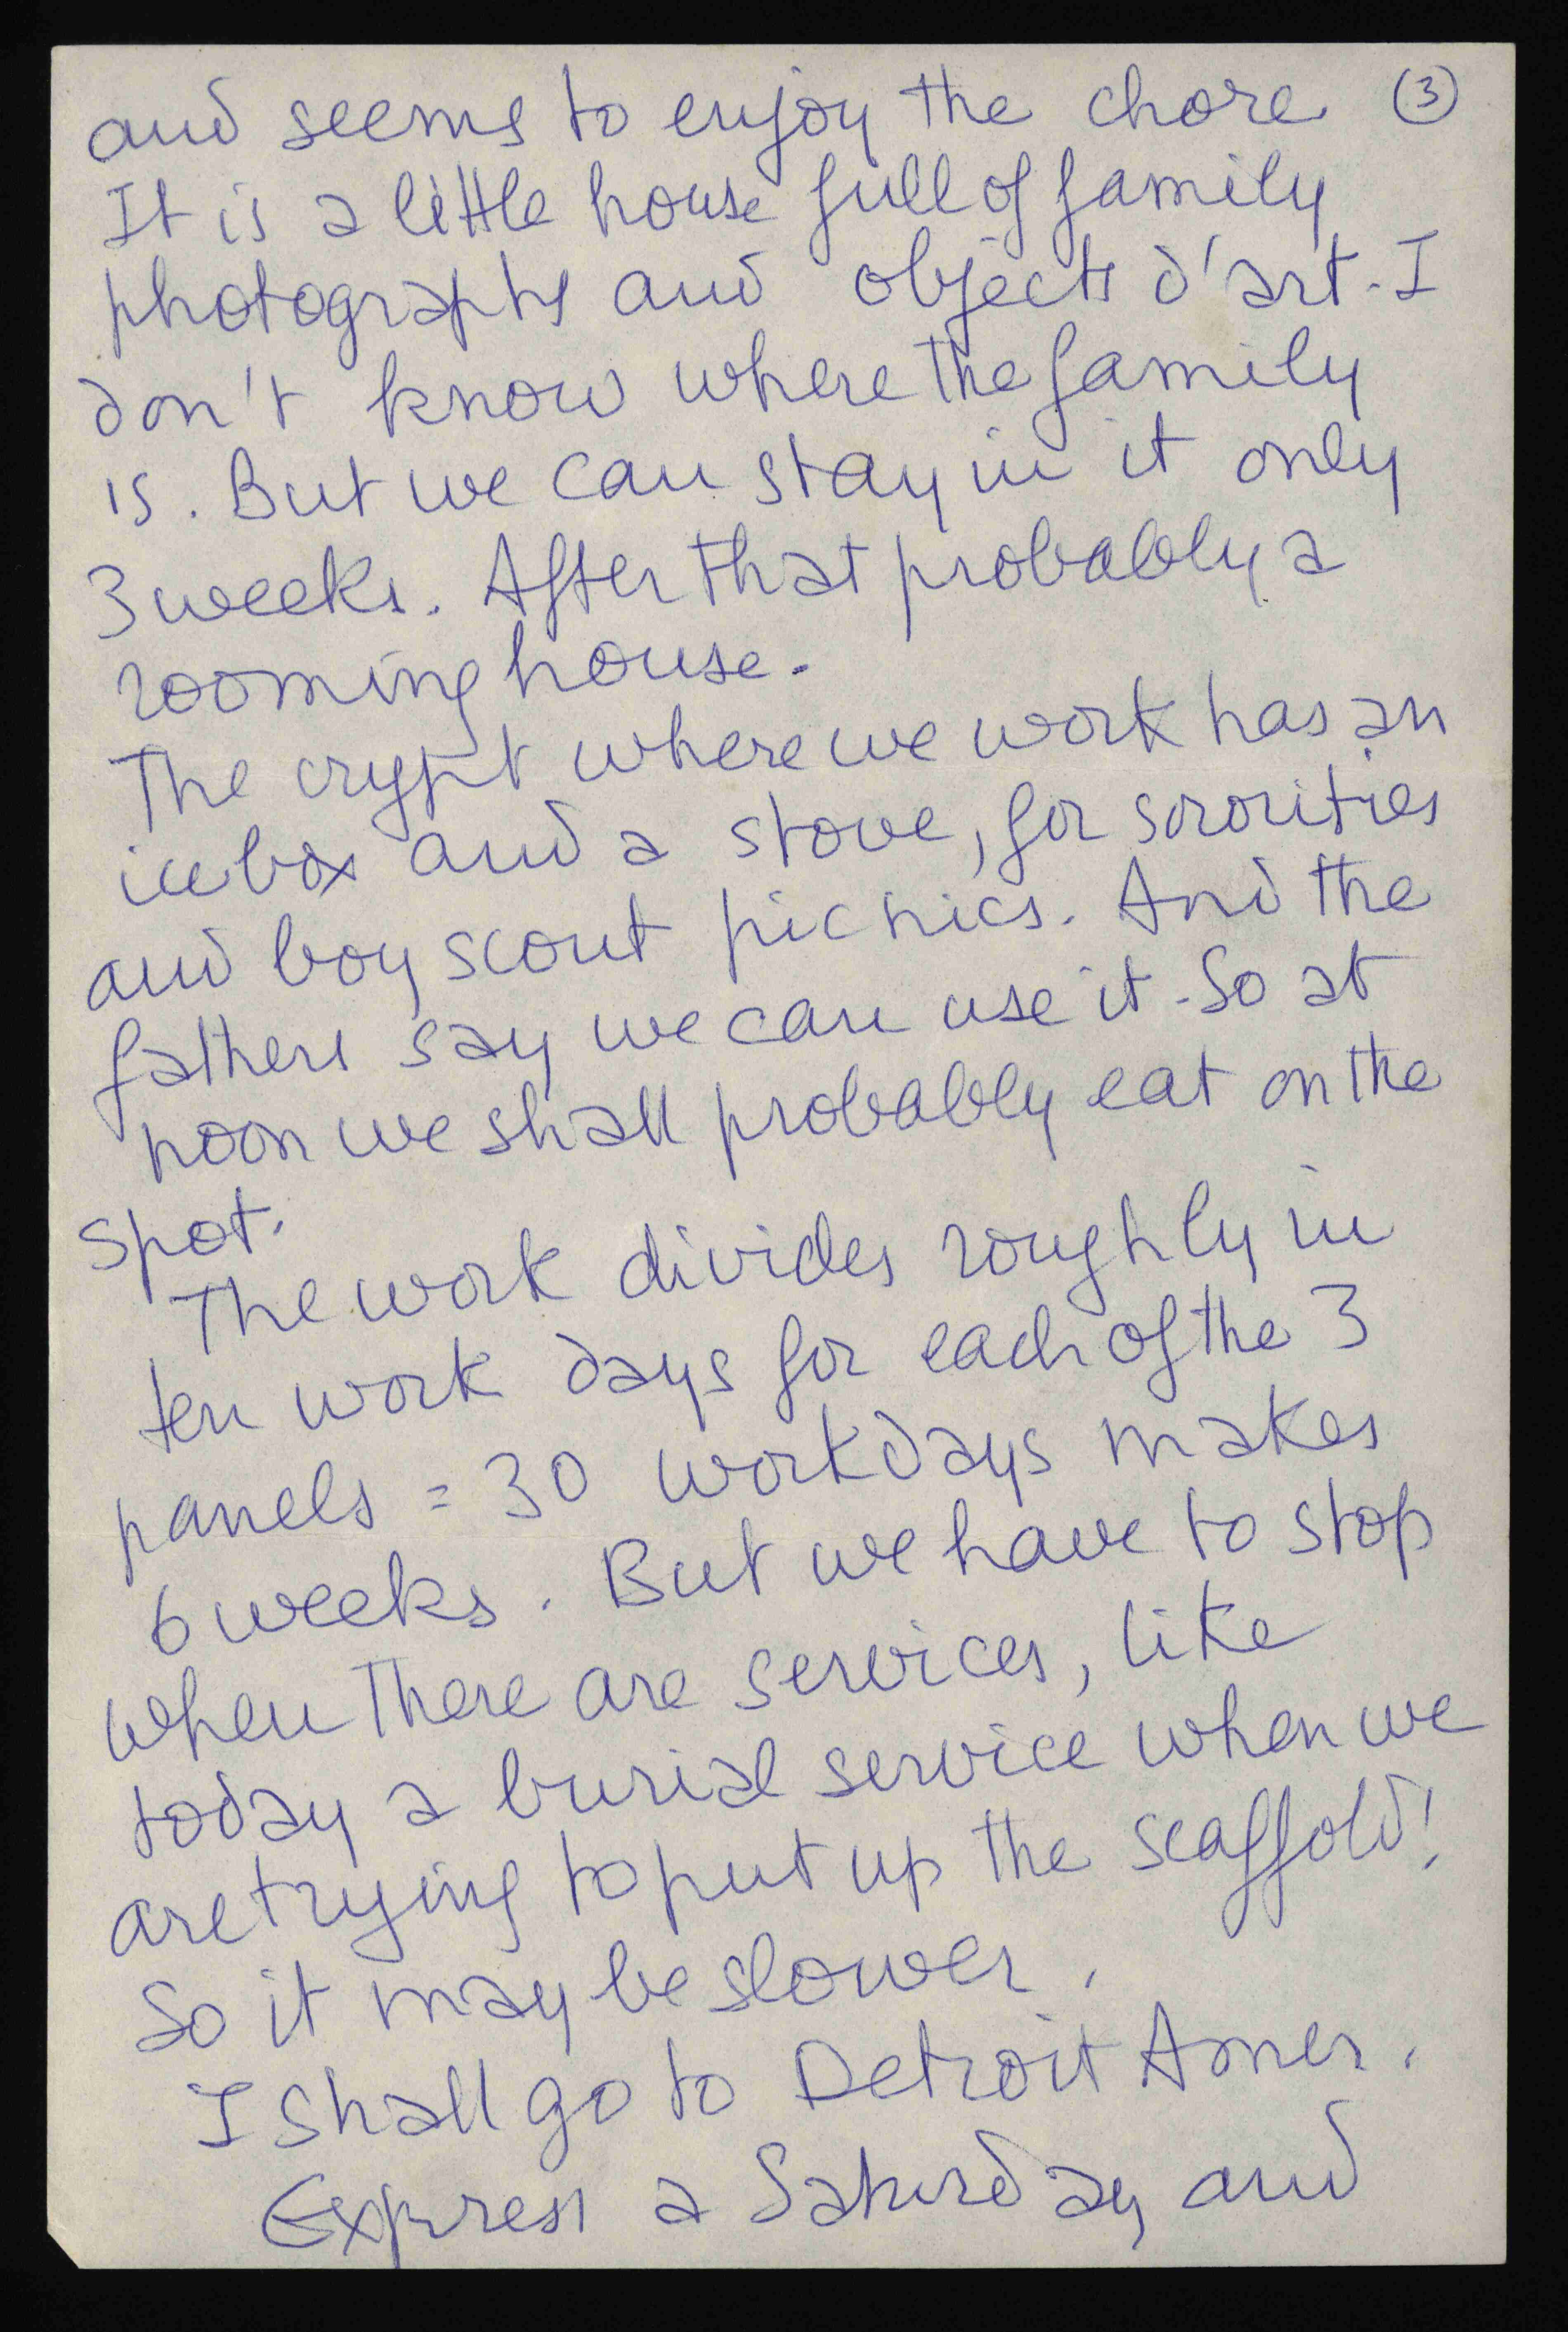 and seems to enjoy the chore (3)
It is a little house full of family
photographs and objects d'art. I
don't know where the family
is. But we can stay in it only
3 weeks. After that probably a
rooming house.
The crypt where we work has an
icebox and a stove, for sororities
and boy scout picnics. And the
fathers say we can use it. So at
noon we shall probably eat on the
spot.
The work divides roughly in
ten work days for each of the 3
panels = 30 workdays makes
6 weeks. But we have to stop
when there are services, like
today a burial service when we
are trying to put up the scaffold!
So it may be slower.
I shall go to Detroit Amer.
Express a Saturday and